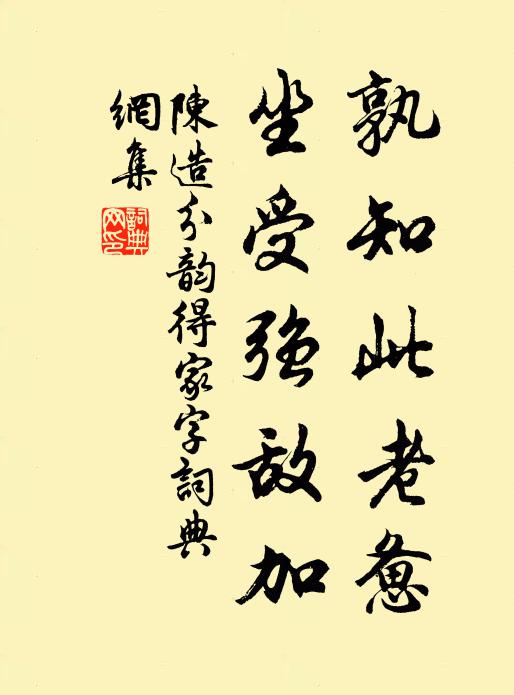 孰知此老惫
坐受强敌加
陳造分韵得家字詞典
網集
詞典網印